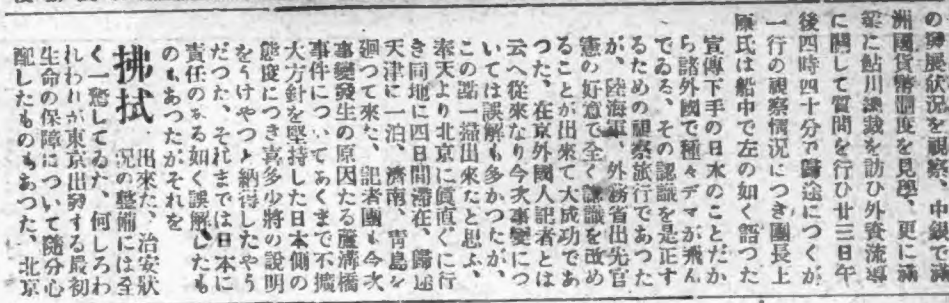 の興展狀況を視察、中銀で滿
洲國貨幣制度を見學、更に滿
業に鮎川總裁を訪ひ外資流導
に關して質問を行ひ廿三日午
後四時四十分で歸途につくが
一行の視察情況につき團長上
原氏は船中で左の如く語つた
宣傳下手の日本のことだか
ら諸外國で種々デマが飛ん
でゐる、その認識を是正す
るための視察旅行であつた
が、陸海軍、外務省出先官
憲の好意で全く認識を改め
ることが出來て大成功であ
つた、在京外國人記者とは
云へ從來なり今次事變につ
いては誤解も多かつたが、
この際一掃出來たと思ふ、
奉天より北京に眞直ぐに行
き同地に四日間滯在、歸途
天津に一泊、濟南、靑島を
廻つて來た、記者團も今次
事變發生の原因たる蘆溝橋
事件についてあくまで不擴
大方針を堅持した日本側の
態度につき喜多少將の說明
をうけやつと納得したやう
だつた、それまでは日本に
責任のある如く誤解したも
のもあつたがそれを
拂拭 出來た、治安狀
況の整備には全
く一驚してゐた、何しろわ
れわれが東京出發する最初
生命の保障について隨分心
配したものもあつた、北京